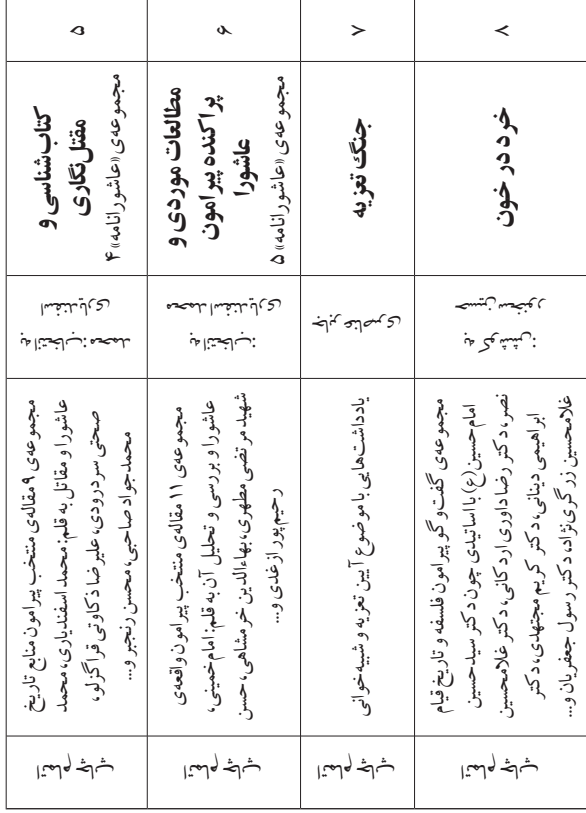 ۵
کتاب‌شناسی و
مقتل‌نگاری
مجموعه‌ی «عاشورانامه» ۴
به انتخاب: محمد
اسفندیاری
مجموعه‌ی ۹ مقاله‌ی منتخب پیرامون منابع تاریخ
عاشورا و مقاتل به قلم: محمد اسفندیاری، محمد
صحتی سردرودی، علیرضا ذکاوتی قراگزلو،
محمدجواد صاحبی، محسن رنجبر و...
اتمام چاپ
۶
مطالعات موردی و
پراکنده پیرامون
عاشورا
مجموعه‌ی «عاشورانامه» ۵
به انتخاب:
محمد اسفندیاری
مجموعه‌ی ۱۱ مقاله‌ی منتخب پیرامون واقعه‌ی
عاشورا و بررسی و تحلیل آن به قلم: امام خمینی،
شهید مرتضی مطهری، بهاءالدین خرمشاهی، حسن
رحیم‌پور ازغدی و...
اتمام چاپ
۷
جنگ تعزیه
جابر عناصری
یادداشت‌هایی با موضوع آیین تعزیه و شبیه‌خوانی
اتمام چاپ
۸
خرد در خون
به کوشش:
حسین سخنور
مجموعه‌ی گفت‌وگو پیرامون فلسفه و تاریخ قیام
امام حسین(ع) با اساتیدی چون دکتر سیدحسین
نصر، دکتر رضا داوری اردکانی، دکتر غلامحسین
ابراهیمی دینانی، دکتر کریم مجتهدی، دکتر
غلامحسین زرگری‌نژاد، دکتر رسول جعفریان و...
اتمام چاپ